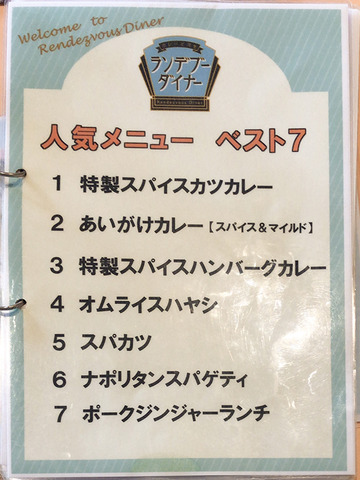 Welcome to
Rendezvous Diner
ランデブー
ダイナー
Rendezvous Diner
人気メニュー ベスト7
1 特製スパイスカツカレー
2 あいがけカレー【スパイス&マイルド】
3 特製スパイスハンバーグカレー
4 オムライスハヤシ
5 スパカツ
6 ナポリタンスパゲティ
7 ポークジンジャーランチ